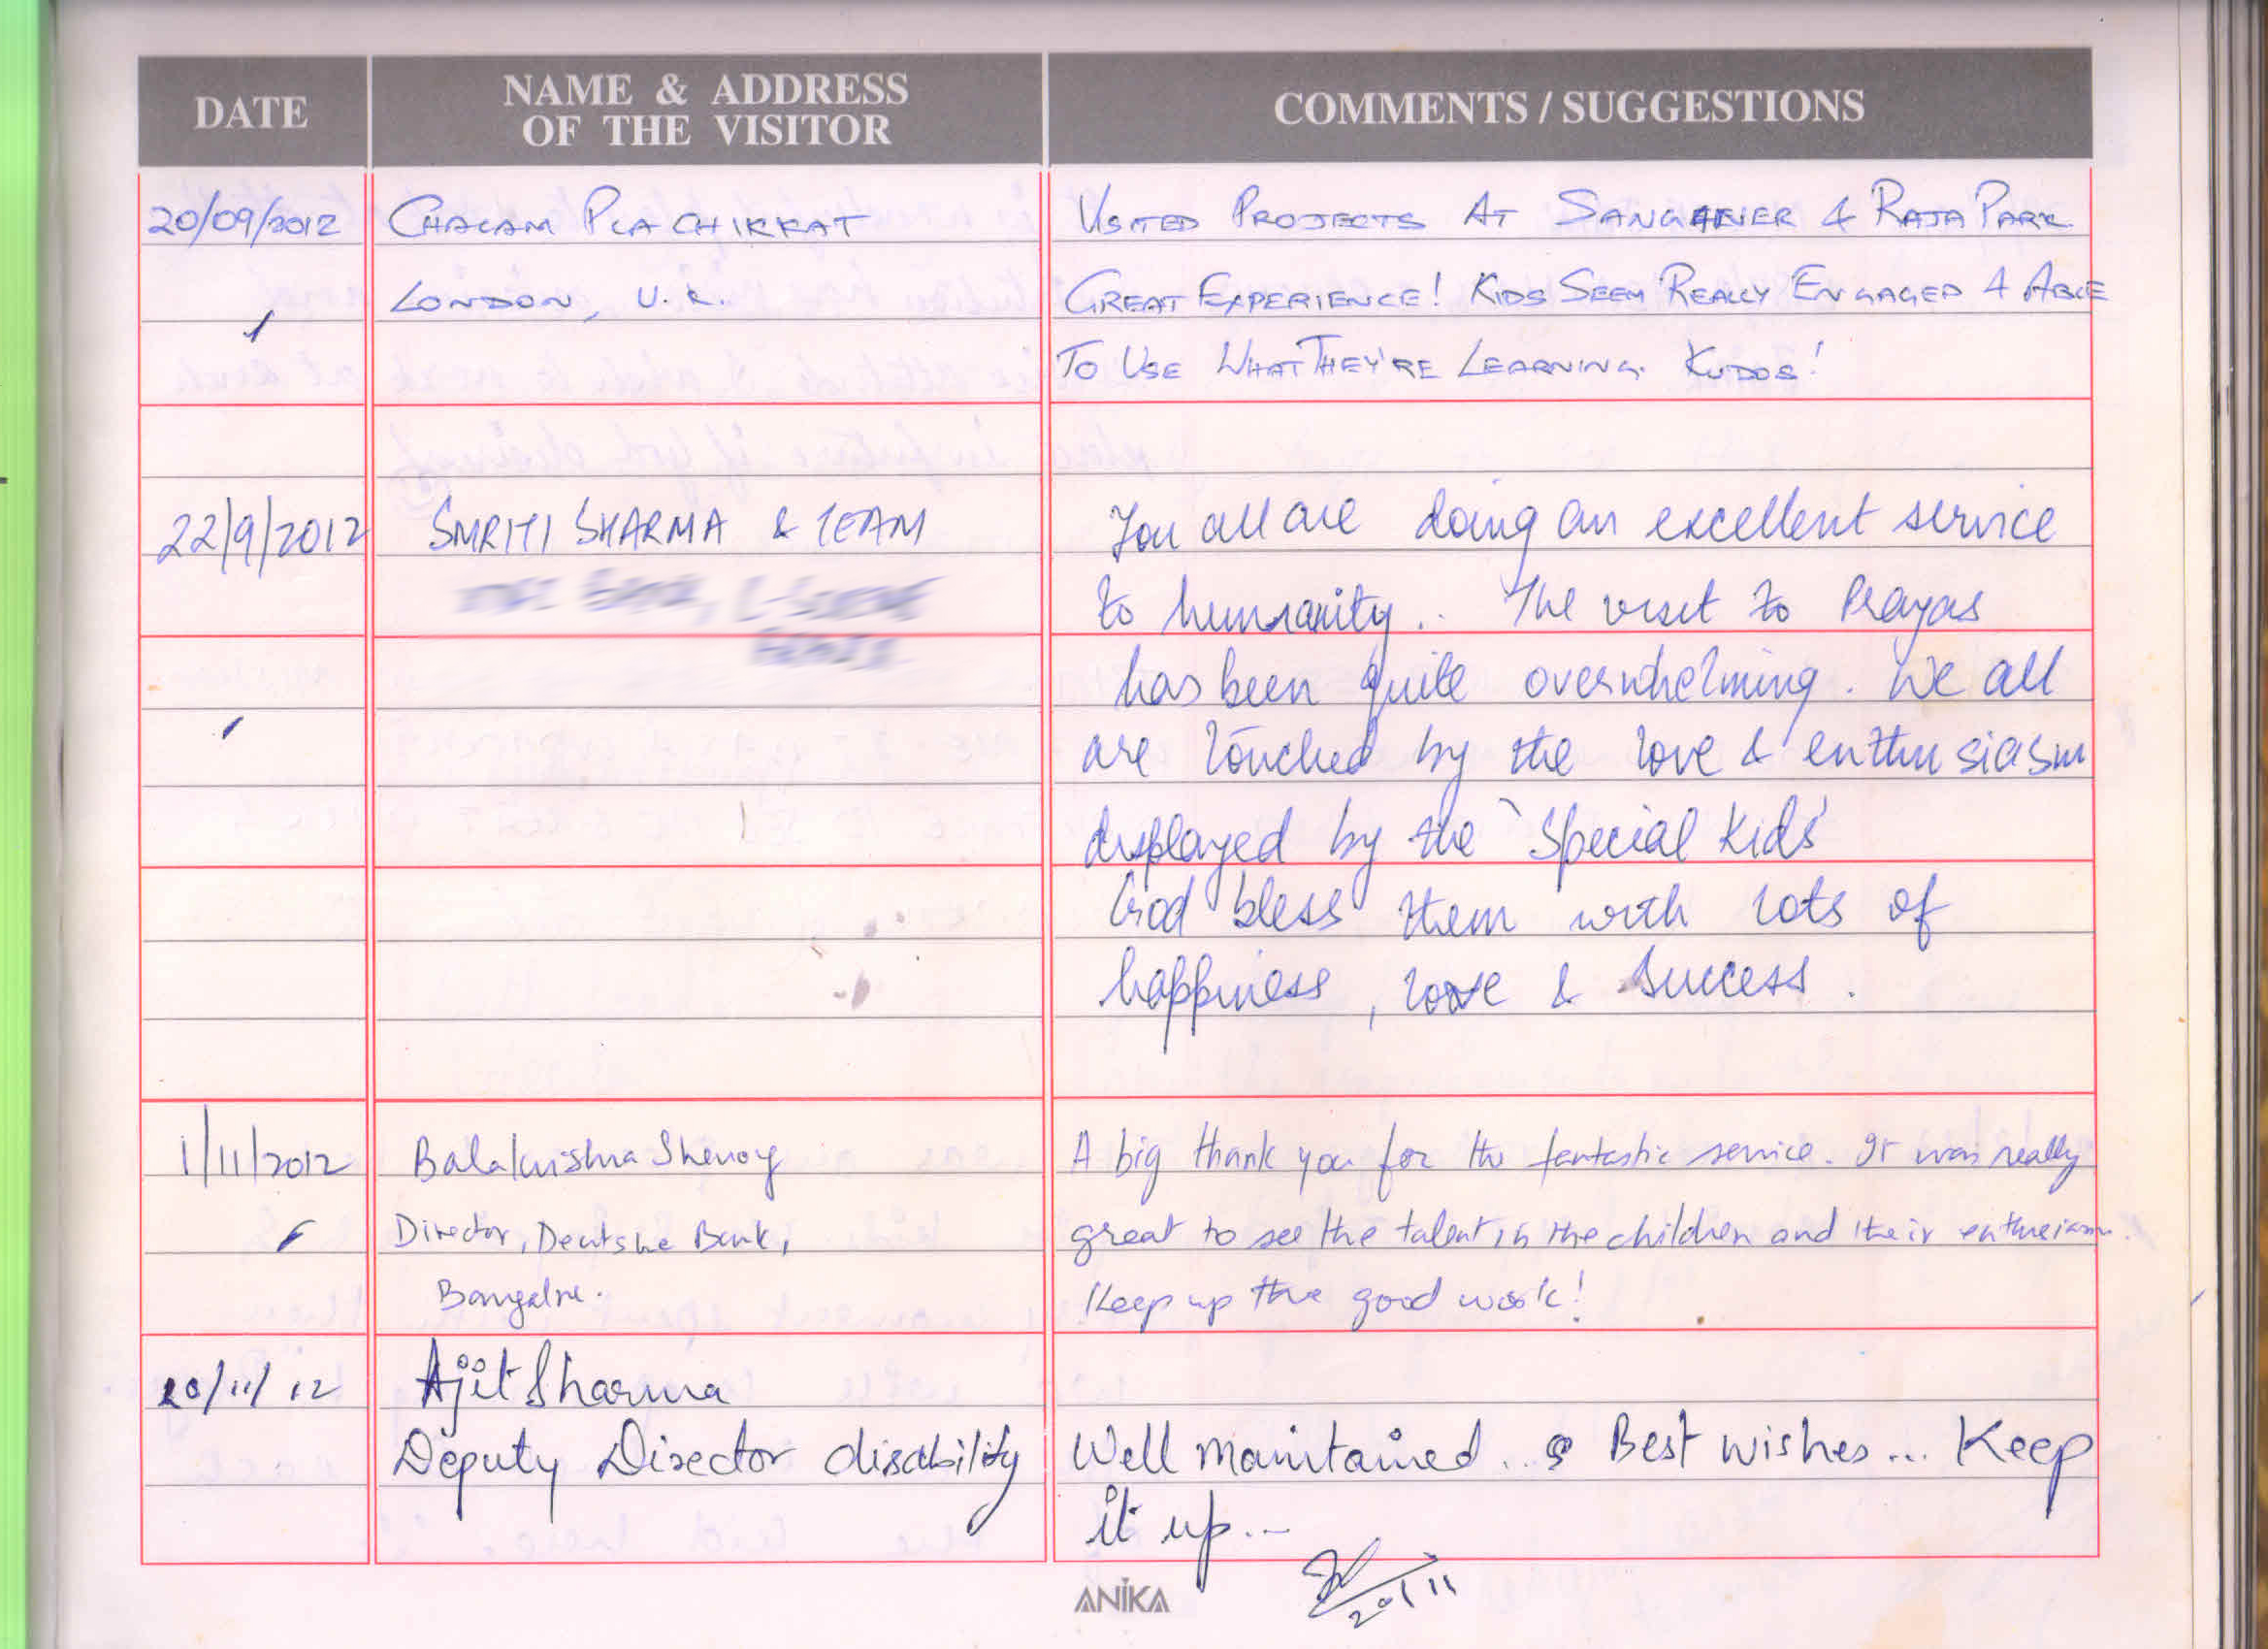 DATE
NAME & ADDRESS
OF THE VISITOR
COMMENTS / SUGGESTIONS
20/09/2012
CHALAM PLACHIKKAT
LONDON, U.K.
VISITED PROJECTS AT SANGANER & RAJA PARK
GREAT EXPERIENCE! KIDS SEEM REALLY ENGAGED & ABLE
TO USE WHAT THEY'RE LEARNING. KUDOS!
22/9/2012
SMRITI SHARMA & TEAM
You all are doing an excellent service
to humanity.. The visit to Prayas
has been quite overwhelming. We all
are touched by the love & enthusiasm
displayed by the 'Special Kids'
God bless them with lots of
happiness, love & success.
1/11/2012
Balakrishna Shenoy
Director, Deutsche Bank,
Bangalore.
A big thank you for the fantastic service. It was really
great to see the talent in the children and their enthusiasm.
Keep up the good work!
20/11/12
Ajit Sharma
Deputy Director disability
Well maintained... Best wishes... Keep
it up...
20/11
ANIKA